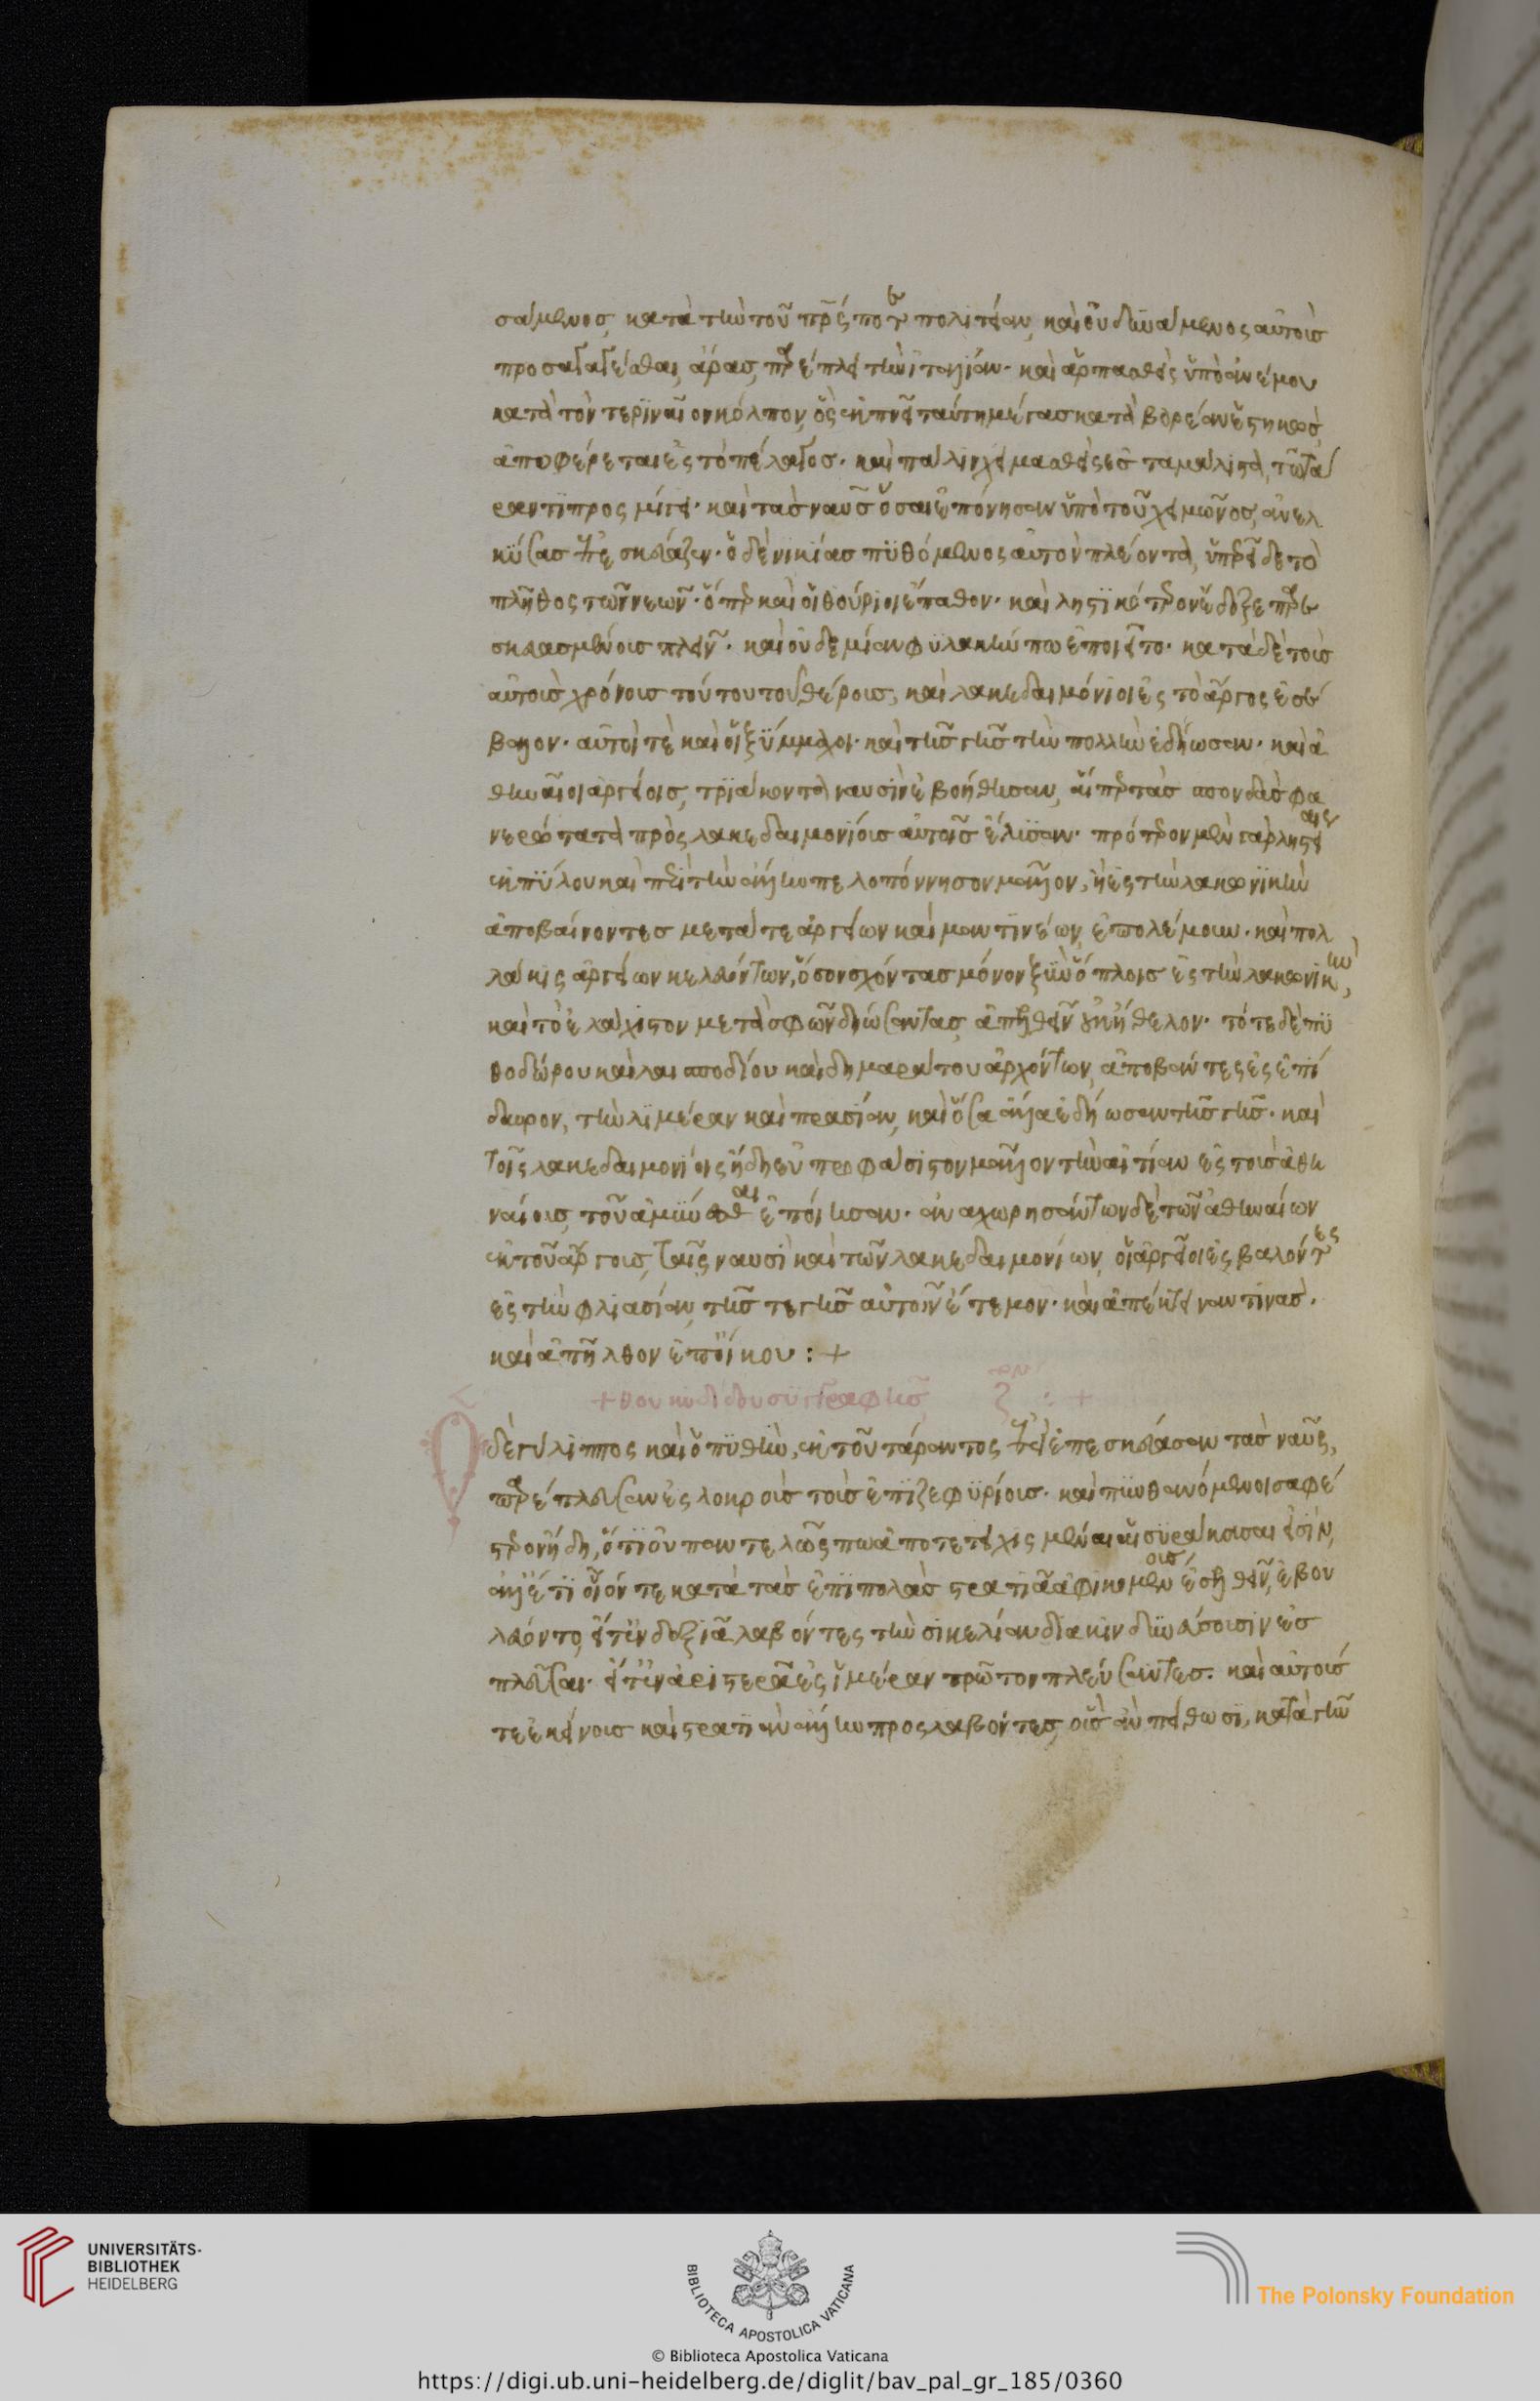 σάμενος, κατὰ τὴν τοῦ πρς ποτε πολιτείαν, καὶ οὐ δυνάμενος αὐτοὺς
προσαγαγέσθαι, ἄρας, παρέπλει τὴν ἰταλίαν· καὶ ἁρπασθεὶς ὑπὸ ἀνέμου
κατὰ τὸν τεριναῖον κόλπον, ὃς ἐκπνεῖ ταύτη μέγας κατὰ βορέαν ἑστηκὼς
ἀποφέρεται ἐς τὸ πέλαγος· καὶ πάλιν χειμασθεὶς ἐς τὰ μάλιστα, τῶ τά
ραντι προσμίγει· καὶ τὰς ναῦς ὅσαι ἐπόνησαν ὑπὸ τοῦ χειμῶνος, ἀνελ
κύσας ἐπεσκεύαζεν· ὁ δὲ νικίας πυθόμενος αὐτὸν πλέοντα, ὑπερεῖδε τὸ
πλῆθος τῶν νεῶν· ὅπερ καὶ οἱ θούριοι ἔπαθον· καὶ ληστικώτερον ἔδοξε παρε
σκευασμένους πλεῖν· καὶ οὐδεμίαν φυλακήν πω ἐποιεῖτο· κατὰ δὲ τοὺς
αὐτοὺς χρόνους τούτου τοῦ θέρους, καὶ λακεδαιμόνιοι ἐς τὸ ἄργος ἐσέ
βαλον· αὐτοί τε καὶ οἱ ξύμμαχοι· καὶ τῆς γῆς τὴν πολλὴν ἐδήωσαν· καὶ ἀ
θηναῖοι ἀργείοις, τριάκοντα ναυσὶν ἐβοήθησαν, αἵπερ τὰς σπονδὰς φα
νερώτατα πρὸς λακεδαιμονίους αὐτοῖς ἔλυσαν· πρότερον μὲν γὰρ ληστείαις
ἐκ πύλου καὶ περὶ τὴν ἄλλην πελοπόννησον μᾶλλον, ἢ ἐς τὴν λακωνικὴν
ἀποβαίνοντες μετά τε ἀργείων καὶ μαντινέων, ἐπολέμουν· καὶ πολ
λάκις ἀργείων κελευόντων, ὅσον σχόντας μόνον ξὺν ὅπλοις ἐς τὴν λακωνικὴν,
καὶ τὸ ἐλάχιστον μετὰ σφῶν δηώσαντας, ἀπελθεῖν οὐκ ἤθελον· τότε δὲ πυ
θοδώρου καὶ λαισποδίου καὶ δημαράτου ἀρχόντων, ἀποβάντες ἐς ἐπί
δαυρον, τὴν λιμέραν καὶ πρασίαν, καὶ ὅσα ἄλλα ἐδήωσαν τῆς γῆς· καὶ
τοῖς λακεδαιμονίοις ἤδη εὐπροφάσιστον μᾶλλον τὴν αἰτίαν ἐς τοὺς ἀθη
ναίους, τοῦ ἀμύνεσθαι ἐποίησαν· ἀναχωρησάντων δὲ τῶν ἀθηναίων
ἐκ τοῦ ἄργους, ταῖς ναυσὶ καὶ τῶν λακεδαιμονίων, οἱ ἀργεῖοι ἐσβαλόντες
ἐς τὴν φλιασίαν, τῆς τε γῆς αὐτῶν ἔτεμον· καὶ ἀπέκτεινάν τινας.
καὶ ἀπῆλθον ἐπ' οἴκου : +
+ θουκυδίδου συγγραφῆς ζ : +
Ὁ δὲ γύλιππος καὶ ὁ πυθὴν, ἐκ τοῦ τάραντος ἐπεὶ ἐπεσκεύασαν τὰς ναῦς,
παρέπλευσαν ἐς λοκροὺς τοὺς ἐπιζεφυρίους· καὶ πυνθανόμενοι σαφέ
στερον ἤδη, ὅτι οὐ παντελῶς πω ἀποτετειχισμέναι αἱ συράκουσαι εἰσὶν,
ἀλλ' ἔτι οἷόν τε κατὰ τὰς ἐπιπολὰς στρατιᾶ ἀφικομένους ἐσελθεῖν, ἐβου
λεύοντο, εἴτ' ἐν δεξιᾶ λαβόντες τὴν σικελίαν διακινδυνεύσουσιν ἐσ
πλεῦσαι· εἴτ' ἐν ἀριστερᾶ ἐς ἱμέραν πρῶτον πλεύσαντες. καὶ αὐτούς
τε ἐκείνους καὶ στρατιὰν ἄλλην προσλαβόντες, οὓς ἂν πείθωσι, κατὰ γῆν
UNIVERSITÄTS-
BIBLIOTHEK
HEIDELBERG
BIBLIOTECA APOSTOLICA VATICANA
The Polonsky Foundation
© Biblioteca Apostolica Vaticana
https://digi.ub.uni-heidelberg.de/diglit/bav_pal_gr_185/0360